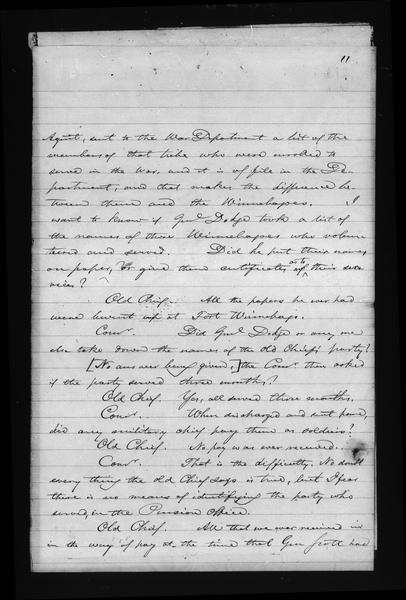 11
Agent, sent to the War Department a list of the
members of that tribe who were mooked to
served in the War, and it is of file in the De-
partment; and that makes the difference be-
tween them and the Winnebagoes. I
want to know if Genl. Dodge took a list of
the names of those Winnebagoes who volun-
teered and served. Did he put their names
on paper, or give them certificates as to of their ser-
vices?
Old Chief. All the papers he ever had
were burnt up at Fort Winnebago.
Comr. Did Genl. Dodge or any one
else take down the names of the old Chief's party?
[No answer being given,] the Comr. then asked
if the party served three months?
Old Chief. Yes, all served three months.
Comr. When discharged and sent home,
did any military chief pay them as soldiers?
Old Chief. No pay was ever received.
Comr. That is the difficulty. No doubt
every thing the old Chief says is true, but I fear
there is no means of identifying the party who
served, in the Pension Office.
Old Chief. All that we ever received in
in the way of pay at the time that Gen Scott had